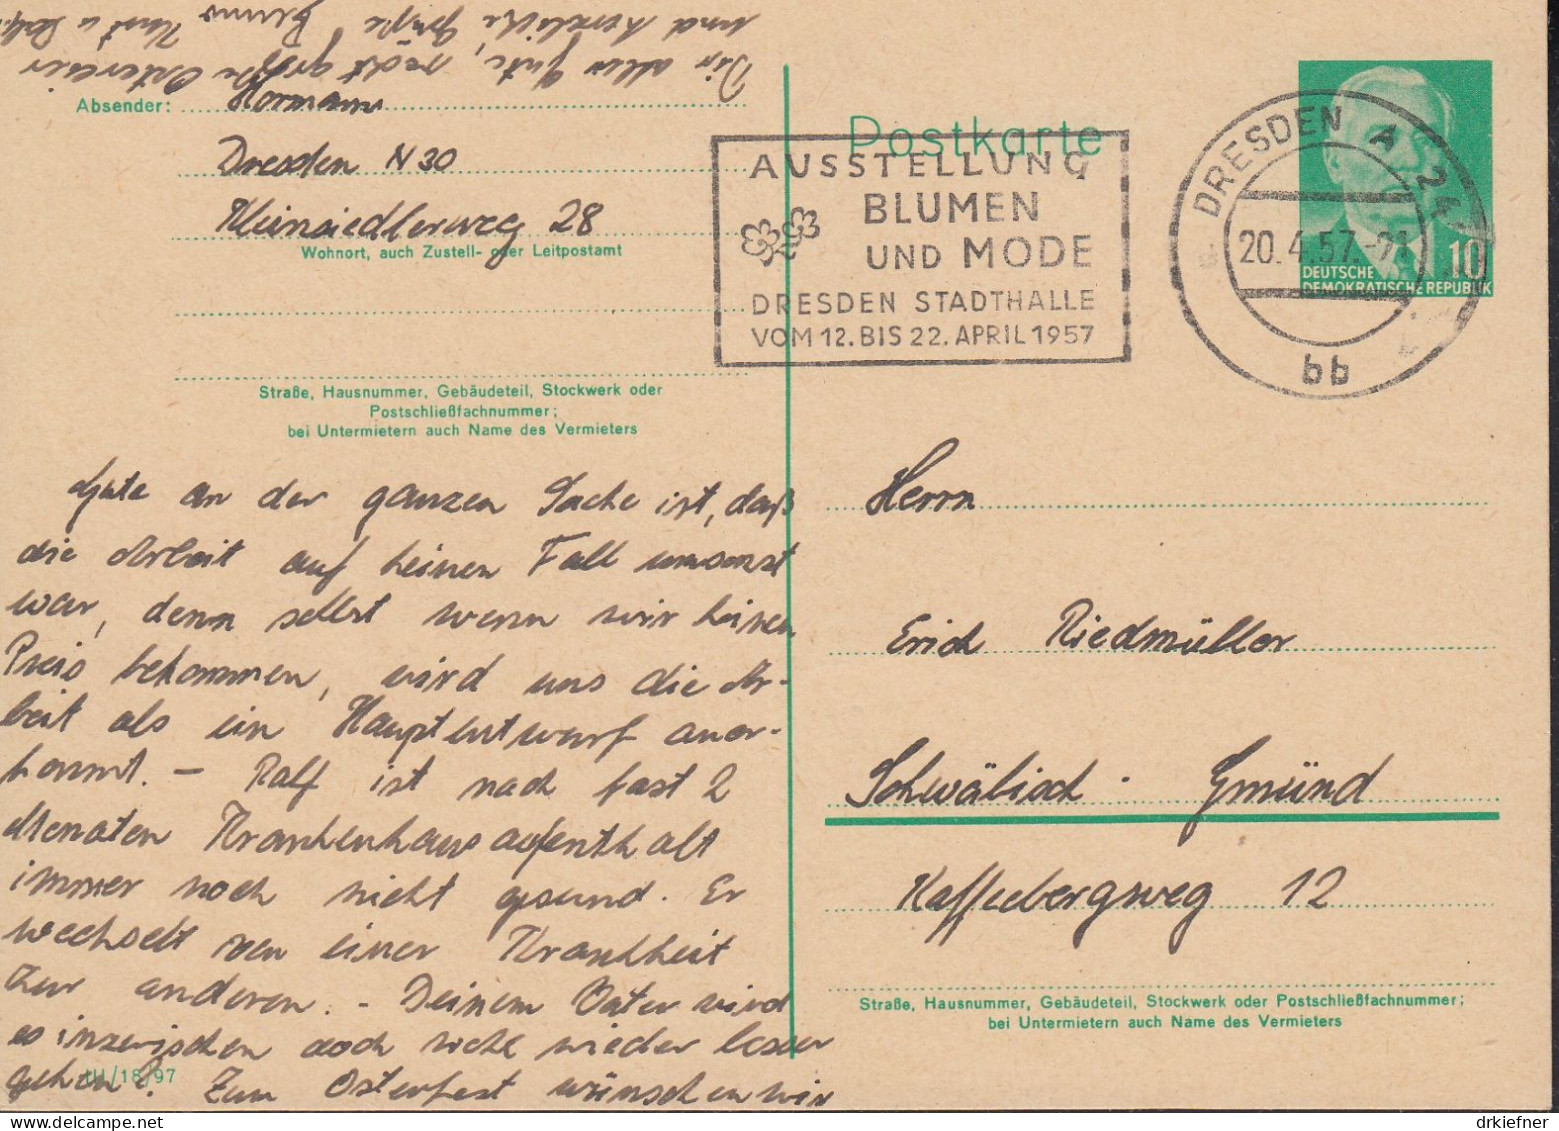 Absender: Hormann
Dresden N 30
Kleinsiedlerweg 28
Wohnort, auch Zustell- oder Leitpostamt
Straße, Hausnummer, Gebäudeteil, Stockwerk oder
Postschließfachnummer;
bei Untermietern auch Name des Vermieters
Gute an der ganzen Sache ist, daß
die Arbeit auf keinen Fall umsonst
war, denn selbst wenn wir keinen
Preis bekommen, wird uns die Ar-
beit als ein Hauptentwurf aner-
kannt. – Ralf ist nach fast 2
Monaten Krankenhausaufenthalt
immer noch nicht gesund. Er
wechselt von einer Krankheit
zur anderen. – Deinem Vater wird
es inzwischen auch wohl wieder besser
gehen?. Zum Osterfest wünschen wir
III/18/97
Dir alles Gute, recht große Ostereier
und herzliche Grüße Bruno Horst u
Postkarte
AUSSTELLUNG
BLUMEN
UND MODE
DRESDEN STADTHALLE
VOM 12. BIS 22. APRIL 1957
DRESDEN A 24
20.4.57.-21
bb
10
DEUTSCHE
DEMOKRATISCHE REPUBLIK
Herrn
Erich Riedmüller
Schwäbisch - Gmünd
Kaffeebergsweg 12
Straße, Hausnummer, Gebäudeteil, Stockwerk oder Postschließfachnummer;
bei Untermietern auch Name des Vermieters
drkiefner